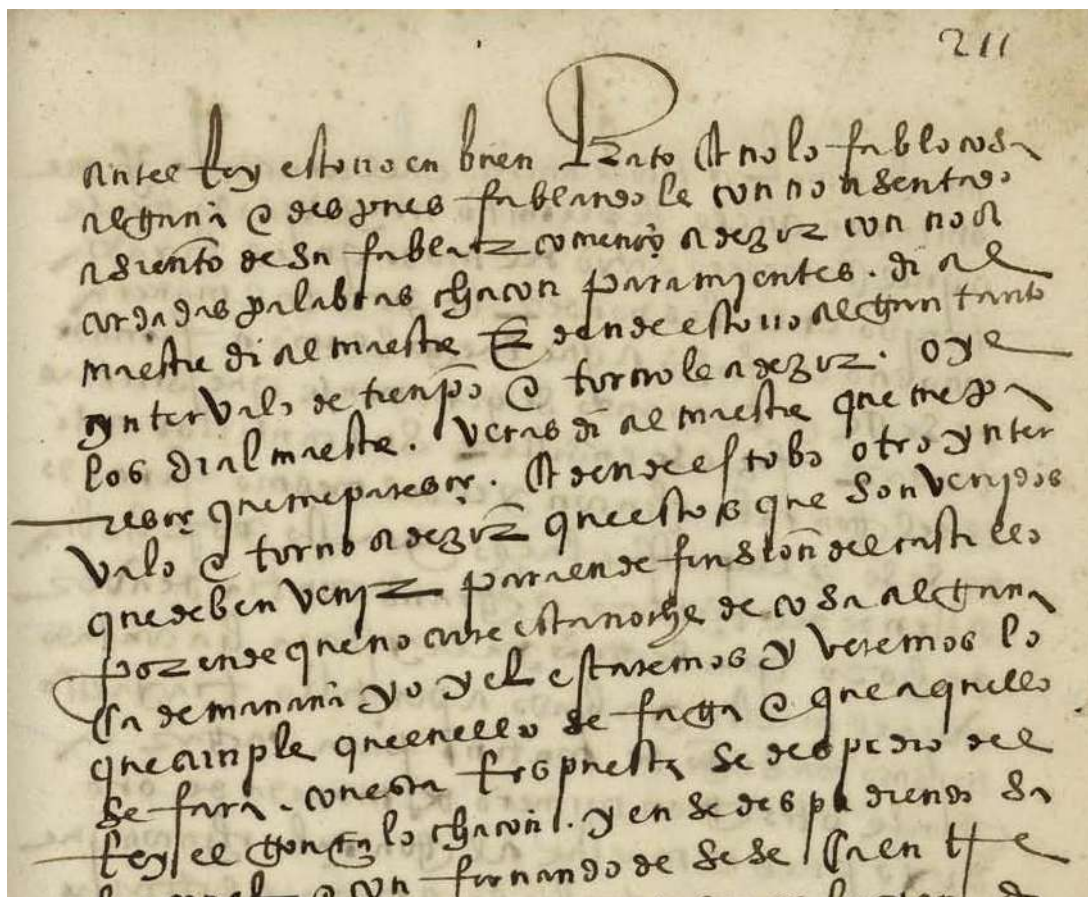 211
antel Rey estouo en buen Rato q̃ no lo fablo cosa
alguna e despues fablando le con no asentado
asiento de su fablar començo a dezir con no a
cordadas palabras chacon paramientes . di al
maestre di al maestre E dende estouo algun tanto
ynteruálo de tienpo e tornole a dezir . oye
los di al maestre . veras di al maestre que me pa
resçe que me paresçe . E dende estobo otro ynter
valo e torno a dezir que estos que son venidos
que deben venir para ende funsion del castillo
por ende que no cure esta noche de cosa alguna
Ca de manana yo y el estaremos y veremos lo
que cunple que en ello se faga e que aquello
se fara . con esta Respuesta se despedio del
Rey el gonçalo chacon . y en se despidiendo sa
con fernando de sese